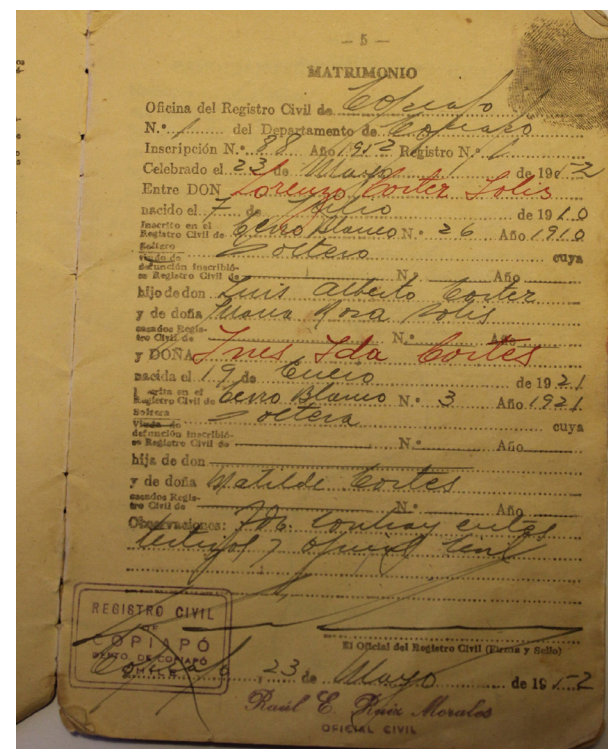 — 5 —
MATRIMONIO
Oficina del Registro Civil de Copiapo
N.° 1 del Departamento de Copiapo
Inscripción N.° 88 Año 1952 Registro N.° 1
Celebrado el 23 de Mayo de 1952
Entre DON Lorenzo Cortez Solis
nacido el 7 de Julio de 1910
Inscrito en el
Registro Civil de Cerro Blanco N.° 26 Año 1910
Soltero Soltero
viudo de cuya
defunción inscribió-
se Registro Civil de N.° Año
hijo de don Luis Alberto Cortez
y de doña Maria Rosa Solis
casados Regis-
tro Civil de N.° Año
y DOÑA Ines Ida Cortes
nacida el 19 de Enero de 1921
Registro Civil de Cerro Blanco N.° 3 Año 1921
Soltera Soltera
Viuda de cuya
defunción inscribió-
se Registro Civil de N.° Año
hija de don
y de doña Matilde Cortes
casados Regis-
tro Civil de N.° Año
Observaciones:
testigos y oficial civil
REGISTRO CIVIL
DE
COPIAPÓ
DEPTO. DE COPIAPÓ
CHILE
El Oficial del Registro Civil (Firma y Sello)
Copiapo 23 de Mayo de 1952
Raúl E. Ruiz Morales
OFICIAL CIVIL